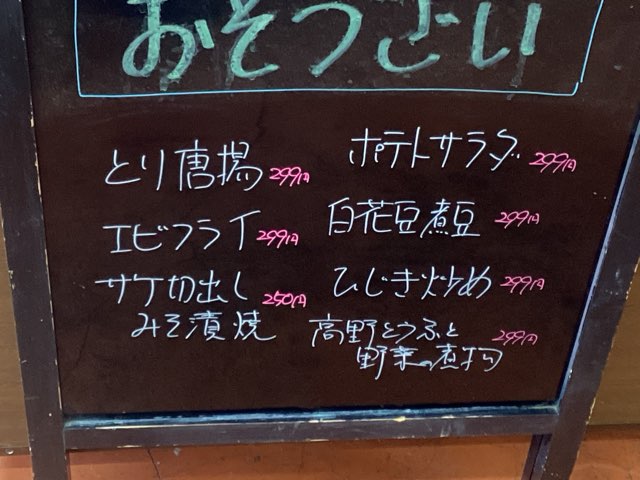 おそうざい
とり唐揚 299円
エビフライ 299円
サケ切出し 250円
みそ漬焼
ポテトサラダ 299円
白花豆煮豆 299円
ひじき炒め 299円
高野とうふと 299円
野菜の煮物